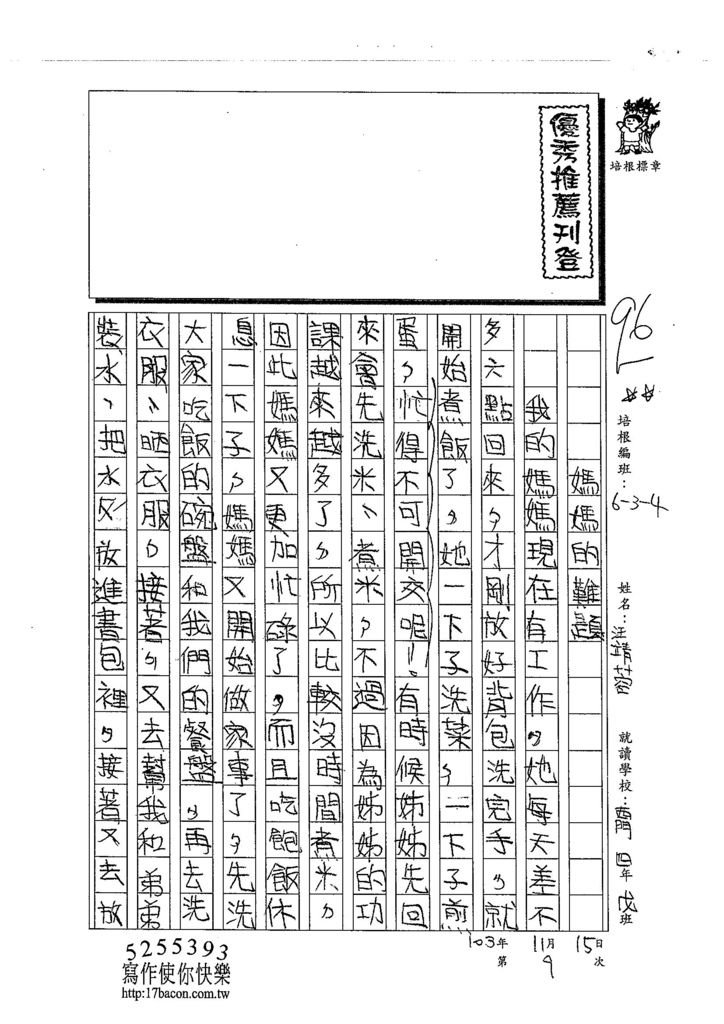 優秀推薦刊登
培根標章
96
培根編班：6-3-4
姓名：汪靖蓉
就讀學校： 四年戊班
103年11月15日
第9次
媽媽的難題
我的媽媽現在有工作，她每天差不
多六點回來，才剛放好背包洗完手，就
開始煮飯了，她一下子洗菜，一下子煎
蛋，忙得不可開交呢！有時候姊姊先回
來會先洗米、煮米，不過因為姊姊的功
課越來越多了，所以比較沒時間煮米，
因此媽媽又更加忙碌了，而且吃飽飯休
息一下子，媽媽又開始做家事了，先洗
大家吃飯的碗盤和我們的餐盤，再去洗
衣服、晒衣服，接著，又去幫我和弟弟
裝水、把水放進書包裡，接著又去放
5255393
寫作使你快樂
http:17bacon.com.tw